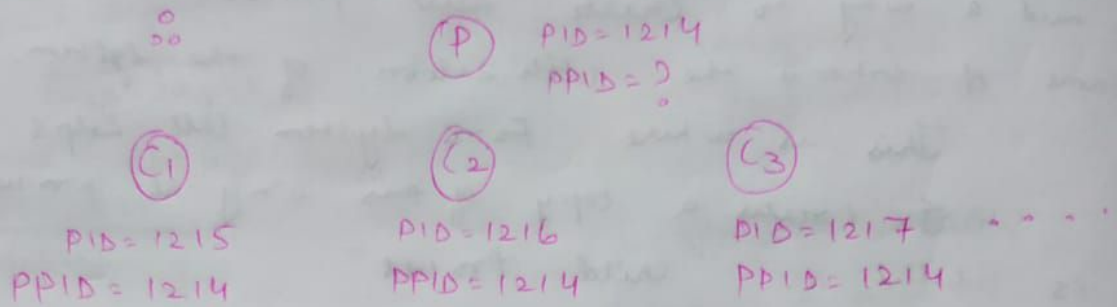 P PID = 1214
PPID = ?
C1 C2 C3
PID = 1215 PID = 1216 PID = 1217 ....
PPID = 1214 PPID = 1214 PPID = 1214